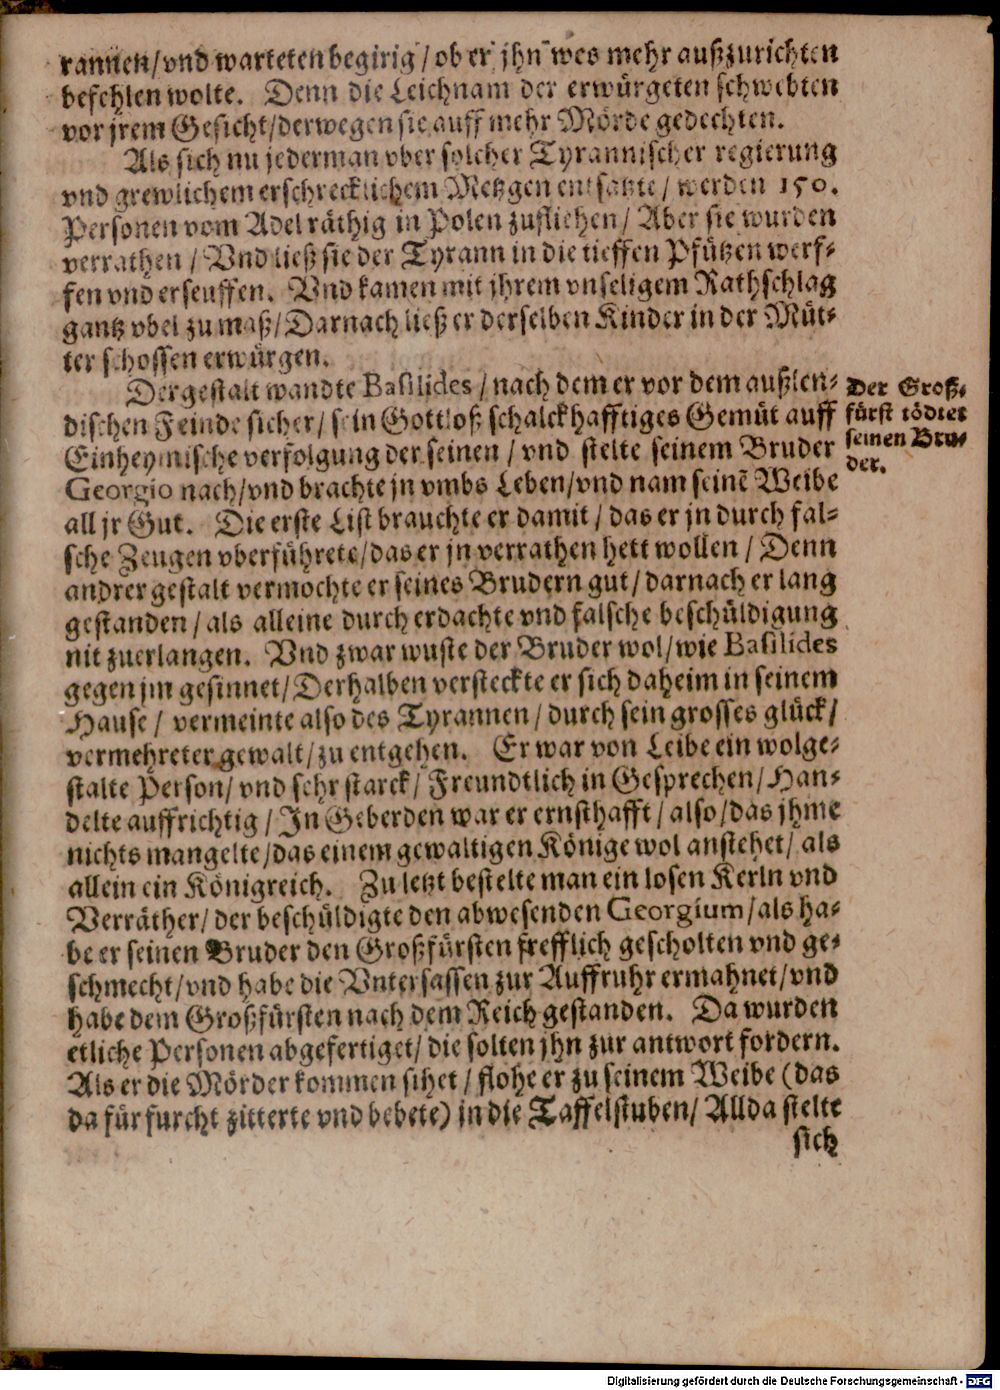 rannen/vnd warteten begirig/ob er jhn wes mehr außzurichten
befehlen wolte. Denn die Leichnam der erwürgeten schwebten
vor jrem Gesicht/derwegen sie auff mehr Mörde gedechten.
Als sich nu jederman vber solcher Tyrannischer regierung
vnd grewlichem erschrecklichem Metzgen entsatzte/werden 150.
Personen vom Adel räthig in Polen zufliehen/Aber sie wurden
verrathen/Vnd ließ sie der Tyrann in die tieffen Pfützen werf-
fen vnd erseuffen. Vnd kamen mit jhrem vnseligem Rathschlag
gantz vbel zu maß/Darnach ließ er derselben Kinder in der Müt-
ter schossen erwürgen.
Dergestalt wandte Basilides/nach dem er vor dem außlen-
dischen Feinde sicher/sein Gottloß schalckhafftiges Gemüt auff
Einheymische verfolgung der seinen/vnd stelte seinem Bruder
Georgio nach/vnd brachte jn vmbs Leben/vnd nam seinẽ Weibe
all jr Gut. Die erste List brauchte er damit/das er jn durch fal-
sche Zeugen vberführete/das er jn verrathen hett wollen/Denn
andrer gestalt vermochte er seines Brudern gut/darnach er lang
gestanden/als alleine durch erdachte vnd falsche beschüldigung
nit zuerlangen. Vnd zwar wuste der Bruder wol/wie Basilides
gegen jm gesinnet/Derhalben versteckte er sich daheim in seinem
Hause/vermeinte also des Tyrannen/durch sein grosses glück/
vermehreter gewalt/zu entgehen. Er war von Leibe ein wolge-
stalte Person/vnd sehr starck/Freundtlich in Gesprechen/Han-
delte auffrichtig/In Geberden war er ernsthafft/also/das jhme
nichts mangelte/das einem gewaltigen Könige wol anstehet/als
allein ein Königreich. Zu letzt bestelte man ein losen Kerln vnd
Verräther/der beschüldigte den abwesenden Georgium/als ha-
be er seinen Bruder den Großfürsten frefflich gescholten vnd ge-
schmecht/vnd habe die Vntersassen zur Auffruhr ermahnet/vnd
habe dem Großfürsten nach dem Reich gestanden. Da wurden
etliche Personen abgefertiget/die solten jhn zur antwort fordern.
Als er die Mörder kommen sihet/flohe er zu seinem Weibe (das
da für furcht zitterte vnd bebete) in die Taffelstuben/Allda stelte
sich
Der Groß-
fürst tödtet
seinen Bru-
der.
Digitalisierung gefördert durch die Deutsche Forschungsgemeinschaft - DFG